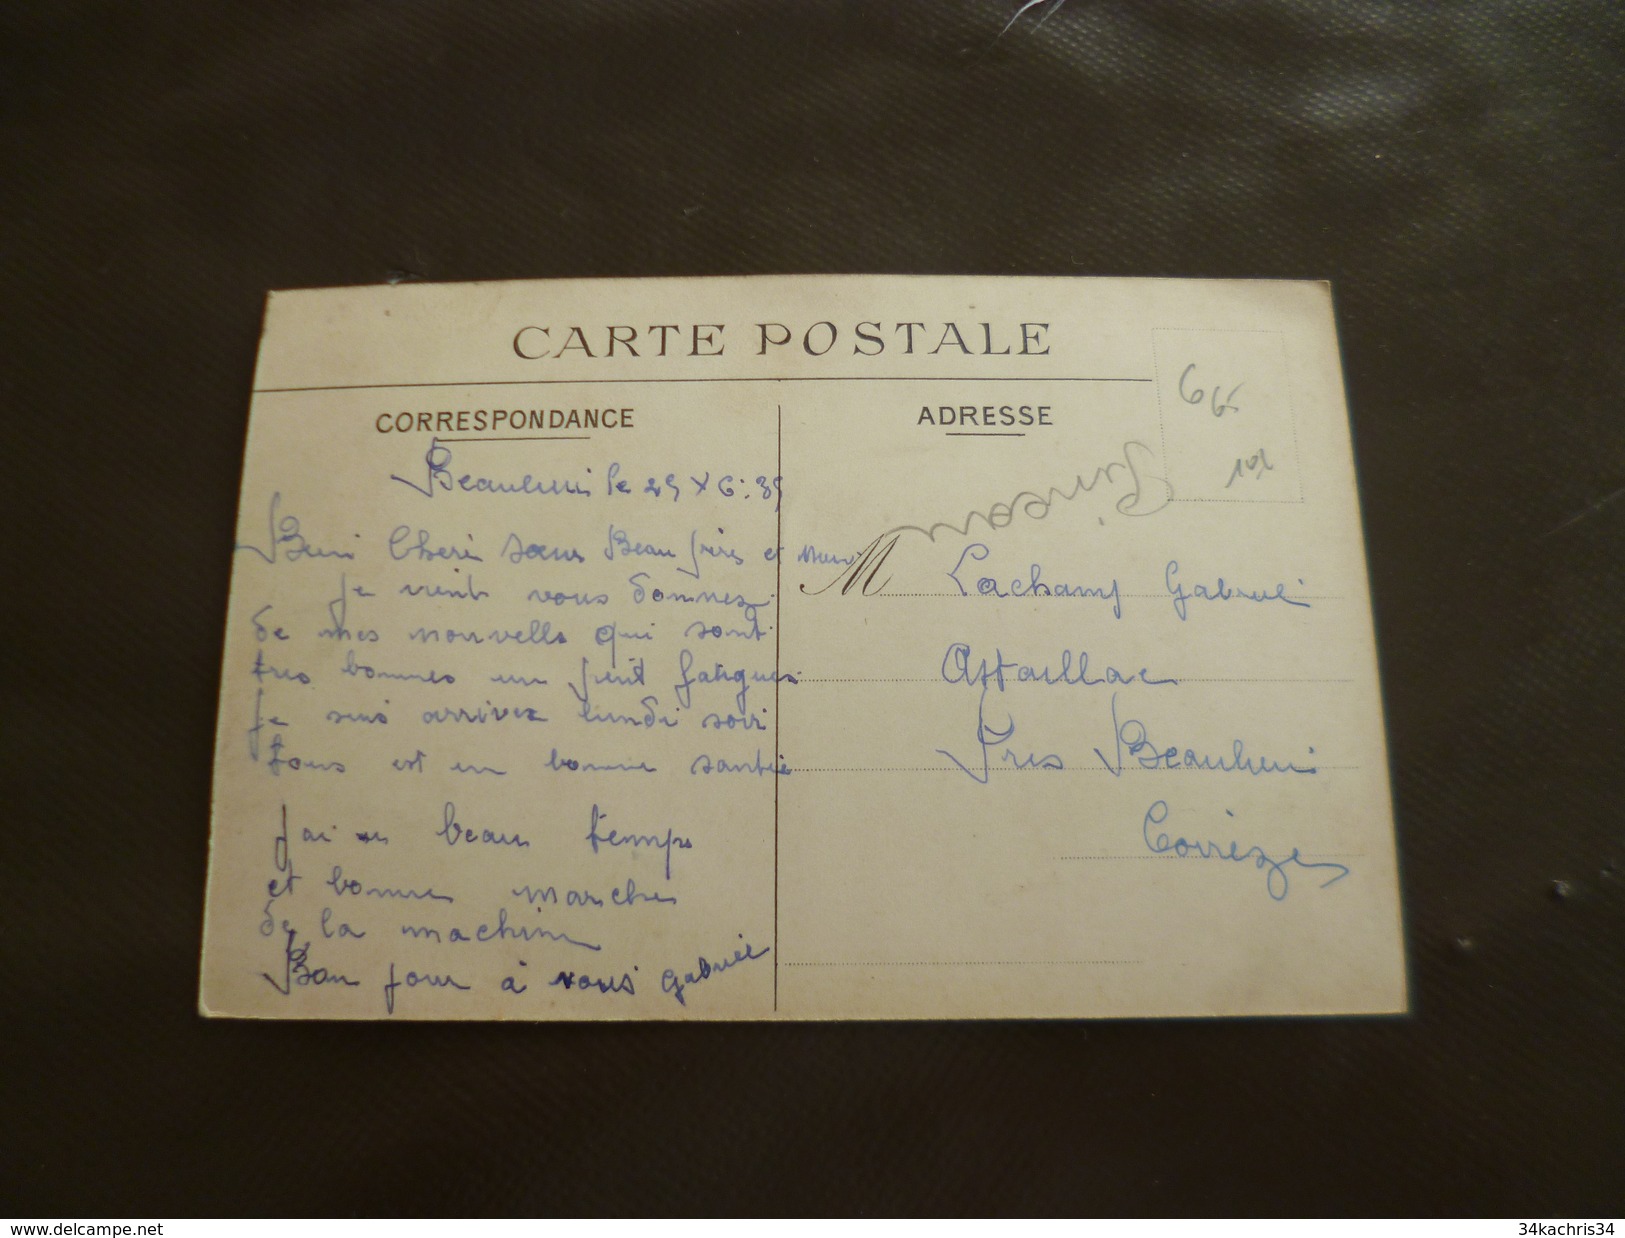 CARTE POSTALE
CORRESPONDANCE
ADRESSE
le 25 x 6: 39
Cheri sœur Beau frère et
je vient vous donnez
de mes nouvelle qui sont
tres bonnes un petit fatigues
Je suis arrivez lundi soir
tous est en bonne santée
J'ai beau temps
et bonne marche
de la machine
Bon jour à vous Gabriel
M Lachamp Gabriel
Près Beaulieu
Corrèze
6
www.delcampe.net
34kachris34